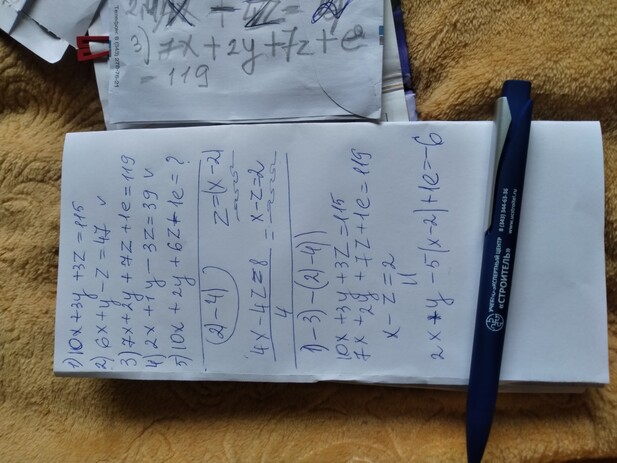 3) 7x + 2y + 7z + e
= 119
1) 10x + 3y + 3z = 115
2) 6x + y - z = 47 v
3) 7x + 2y + 7z + 1e = 119
4) 2x + 1y - 3z = 39 v
5) 10x + 2y + 6z + 1e = ?
(2-4) z = (x-2)
4x - 4z = 8 = x - z = 2
4
1) - 3) - (2) - 4))
10x + 3y + 3z = 115
7x + 2y + 7z + 1e = 119
x - z = 2
2x + y - 5(x-2) + 1e = -6
УЧЕБНО-ЭКСПЕРТНЫЙ ЦЕНТР
«СТРОИТЕЛЬ»